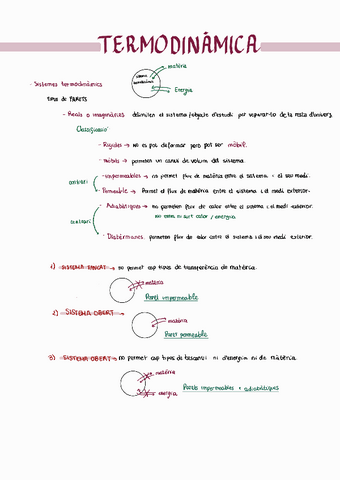 TERMODINÁMICA
matèria
Energia
- Sistemes termodinàmics
tipos de PARETS
- Reals o imaginàries delimiten el sistema/objecte d'estudi per separar-lo de la resta d'univers.
Classificació:
- Rígides → no es pot deformar però pot ser mòbil.
- mòbils → permeten un canvi de volum del sistema.
contrari
- impermeables → no permet flux de matèria entre el sistema i el seu medi.
- Permeable → Permet el flux de matèria entre el sistema i el medi exterior.
contrari
- Adiabàtiques → no permeten flux de calor entre el sistema i el medi exterior.
no entra ni surt calor / energia.
- Diatèrmanes: permeten flux de calor entre el sistema i el seu medi exterior.
1) SISTEMA TANCAT → no permet cap tipus de transferència de matèria.
matèria
Paret impermeable
2) SISTEMA OBERT
matèria
Paret permeable
3) SISTEMA OBERT → no permet cap tipus de ni d'energia ni de matèria.
matèria
energia
Parets impermeables + adiabàtiques